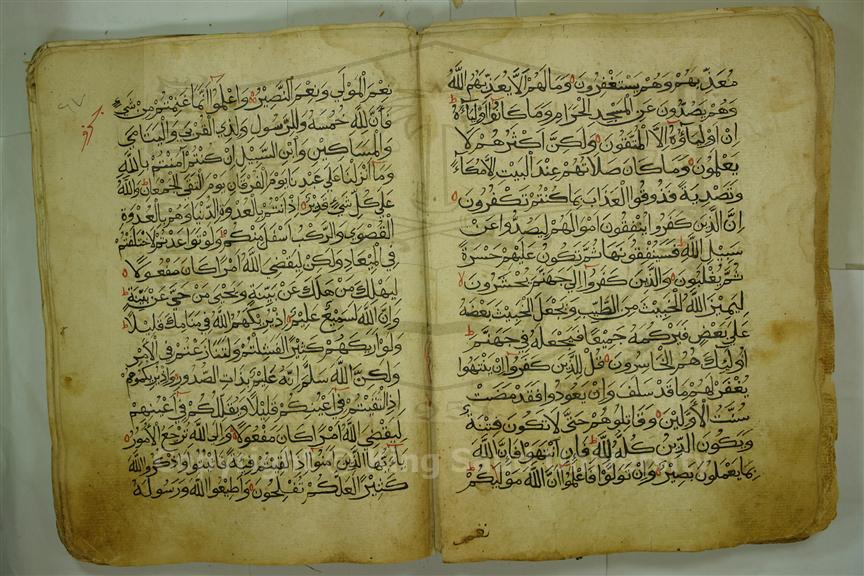 معذبهم وهم يستغفرون وما لهم ألا يعذبهم الله
وهم يصدون عن المسجد الحرام وما كانوا أولياءه
إن أولياؤه إلا المتقون ولكن أكثرهم لا
يعلمون وما كان صلاتهم عند البيت إلا مكاء
وتصدية فذوقوا العذاب بما كنتم تكفرون
إن الذين كفروا ينفقون أموالهم ليصدوا عن
سبيل الله فسينفقونها ثم تكون عليهم حسرة
ثم يغلبون والذين كفروا إلى جهنم يحشرون
ليميز الله الخبيث من الطيب ويجعل الخبيث بعضه
على بعض فيركمه جميعا فيجعله في جهنم
أولئك هم الخاسرون قل للذين كفروا إن ينتهوا
يغفر لهم ما قد سلف وإن يعودوا فقد مضت
سنت الأولين وقاتلوهم حتى لا تكون فتنة
ويكون الدين كله لله فإن انتهوا فإن الله
بما يعملون بصير وإن تولوا فاعلموا أن الله موليكم
نعم
نعم المولى ونعم النصير واعلموا أنما غنمتم من شيء
فأن لله خمسه وللرسول ولذي القربى واليتامى
والمساكين وابن السبيل إن كنتم آمنتم بالله
وما أنزلنا على عبدنا يوم الفرقان يوم التقى الجمعان والله
على كل شيء قدير إذ أنتم بالعدوة الدنيا وهم بالعدوة
القصوى والركب أسفل منكم ولو تواعدتم لاختلفتم
في الميعاد ولكن ليقضي الله أمرا كان مفعولا
ليهلك من هلك عن بينة ويحيى من حي عن بينة
وإن الله لسميع عليم إذ يريكهم الله في منامك قليلا
ولو أريكهم كثيرا لفشلتم ولتنازعتم في الأمر
ولكن الله سلم إنه عليم بذات الصدور وإذ يريكموهم
إذ التقيتم في أعينكم قليلا ويقللكم في أعينهم
ليقضي الله أمرا كان مفعولا وإلى الله ترجع الأمور
يا أيها الذين آمنوا إذا لقيتم فئة فاثبتوا واذكروا الله
كثيرا لعلكم تفلحون وأطيعوا الله ورسوله